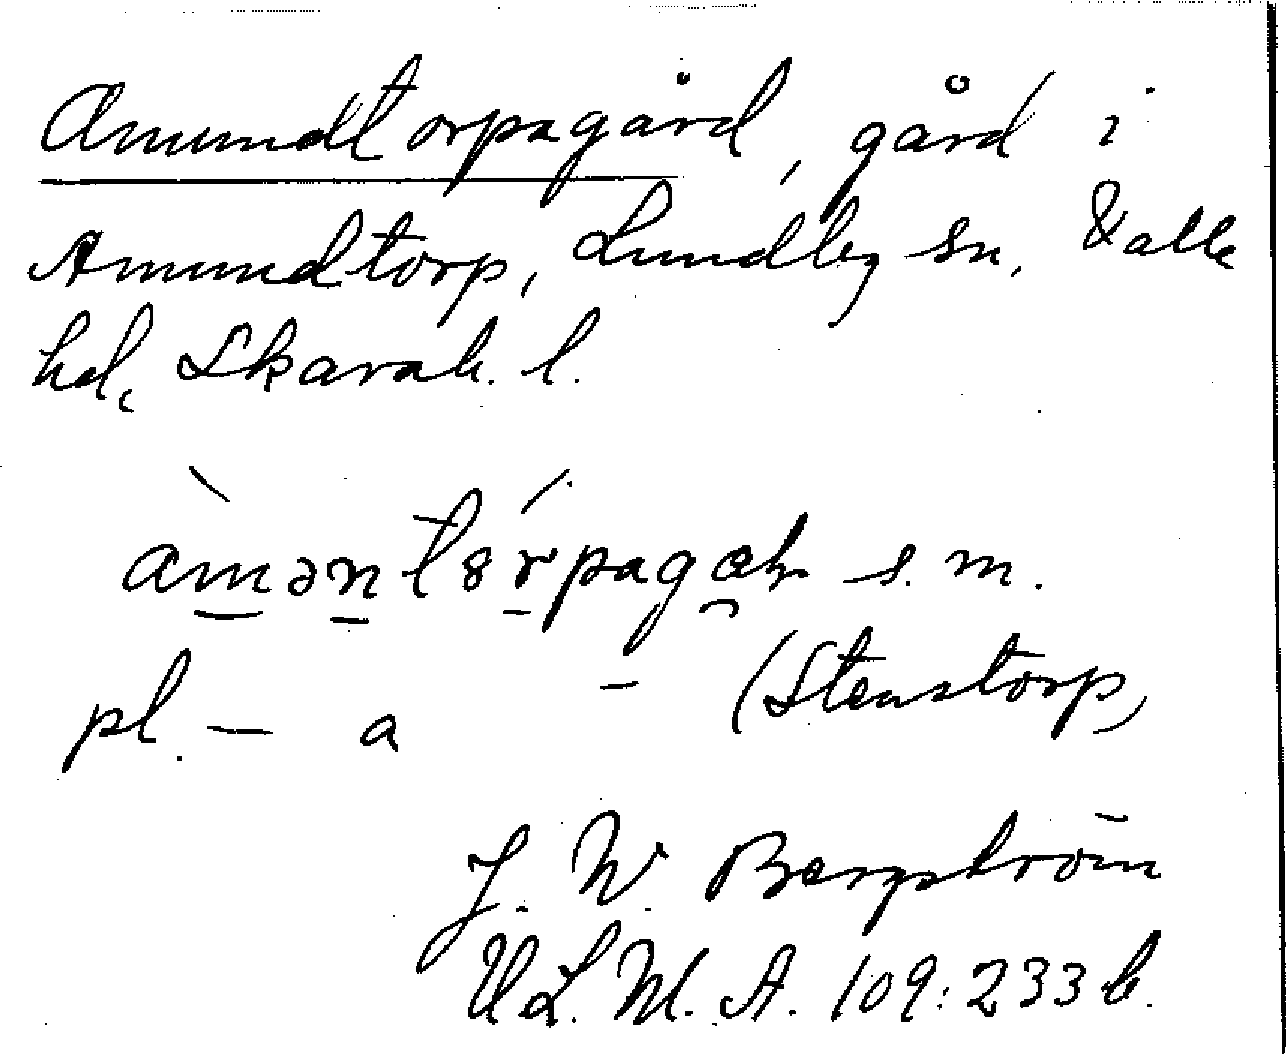 Amundtorpagård, gård i
Amundtorp, Lundby sn, Valle
hd, Skarab. l.
àməntórpagɑh s. m.
pl. — a (Stenstorp)
J. W. Bergström
ULMA. 109:233 b.